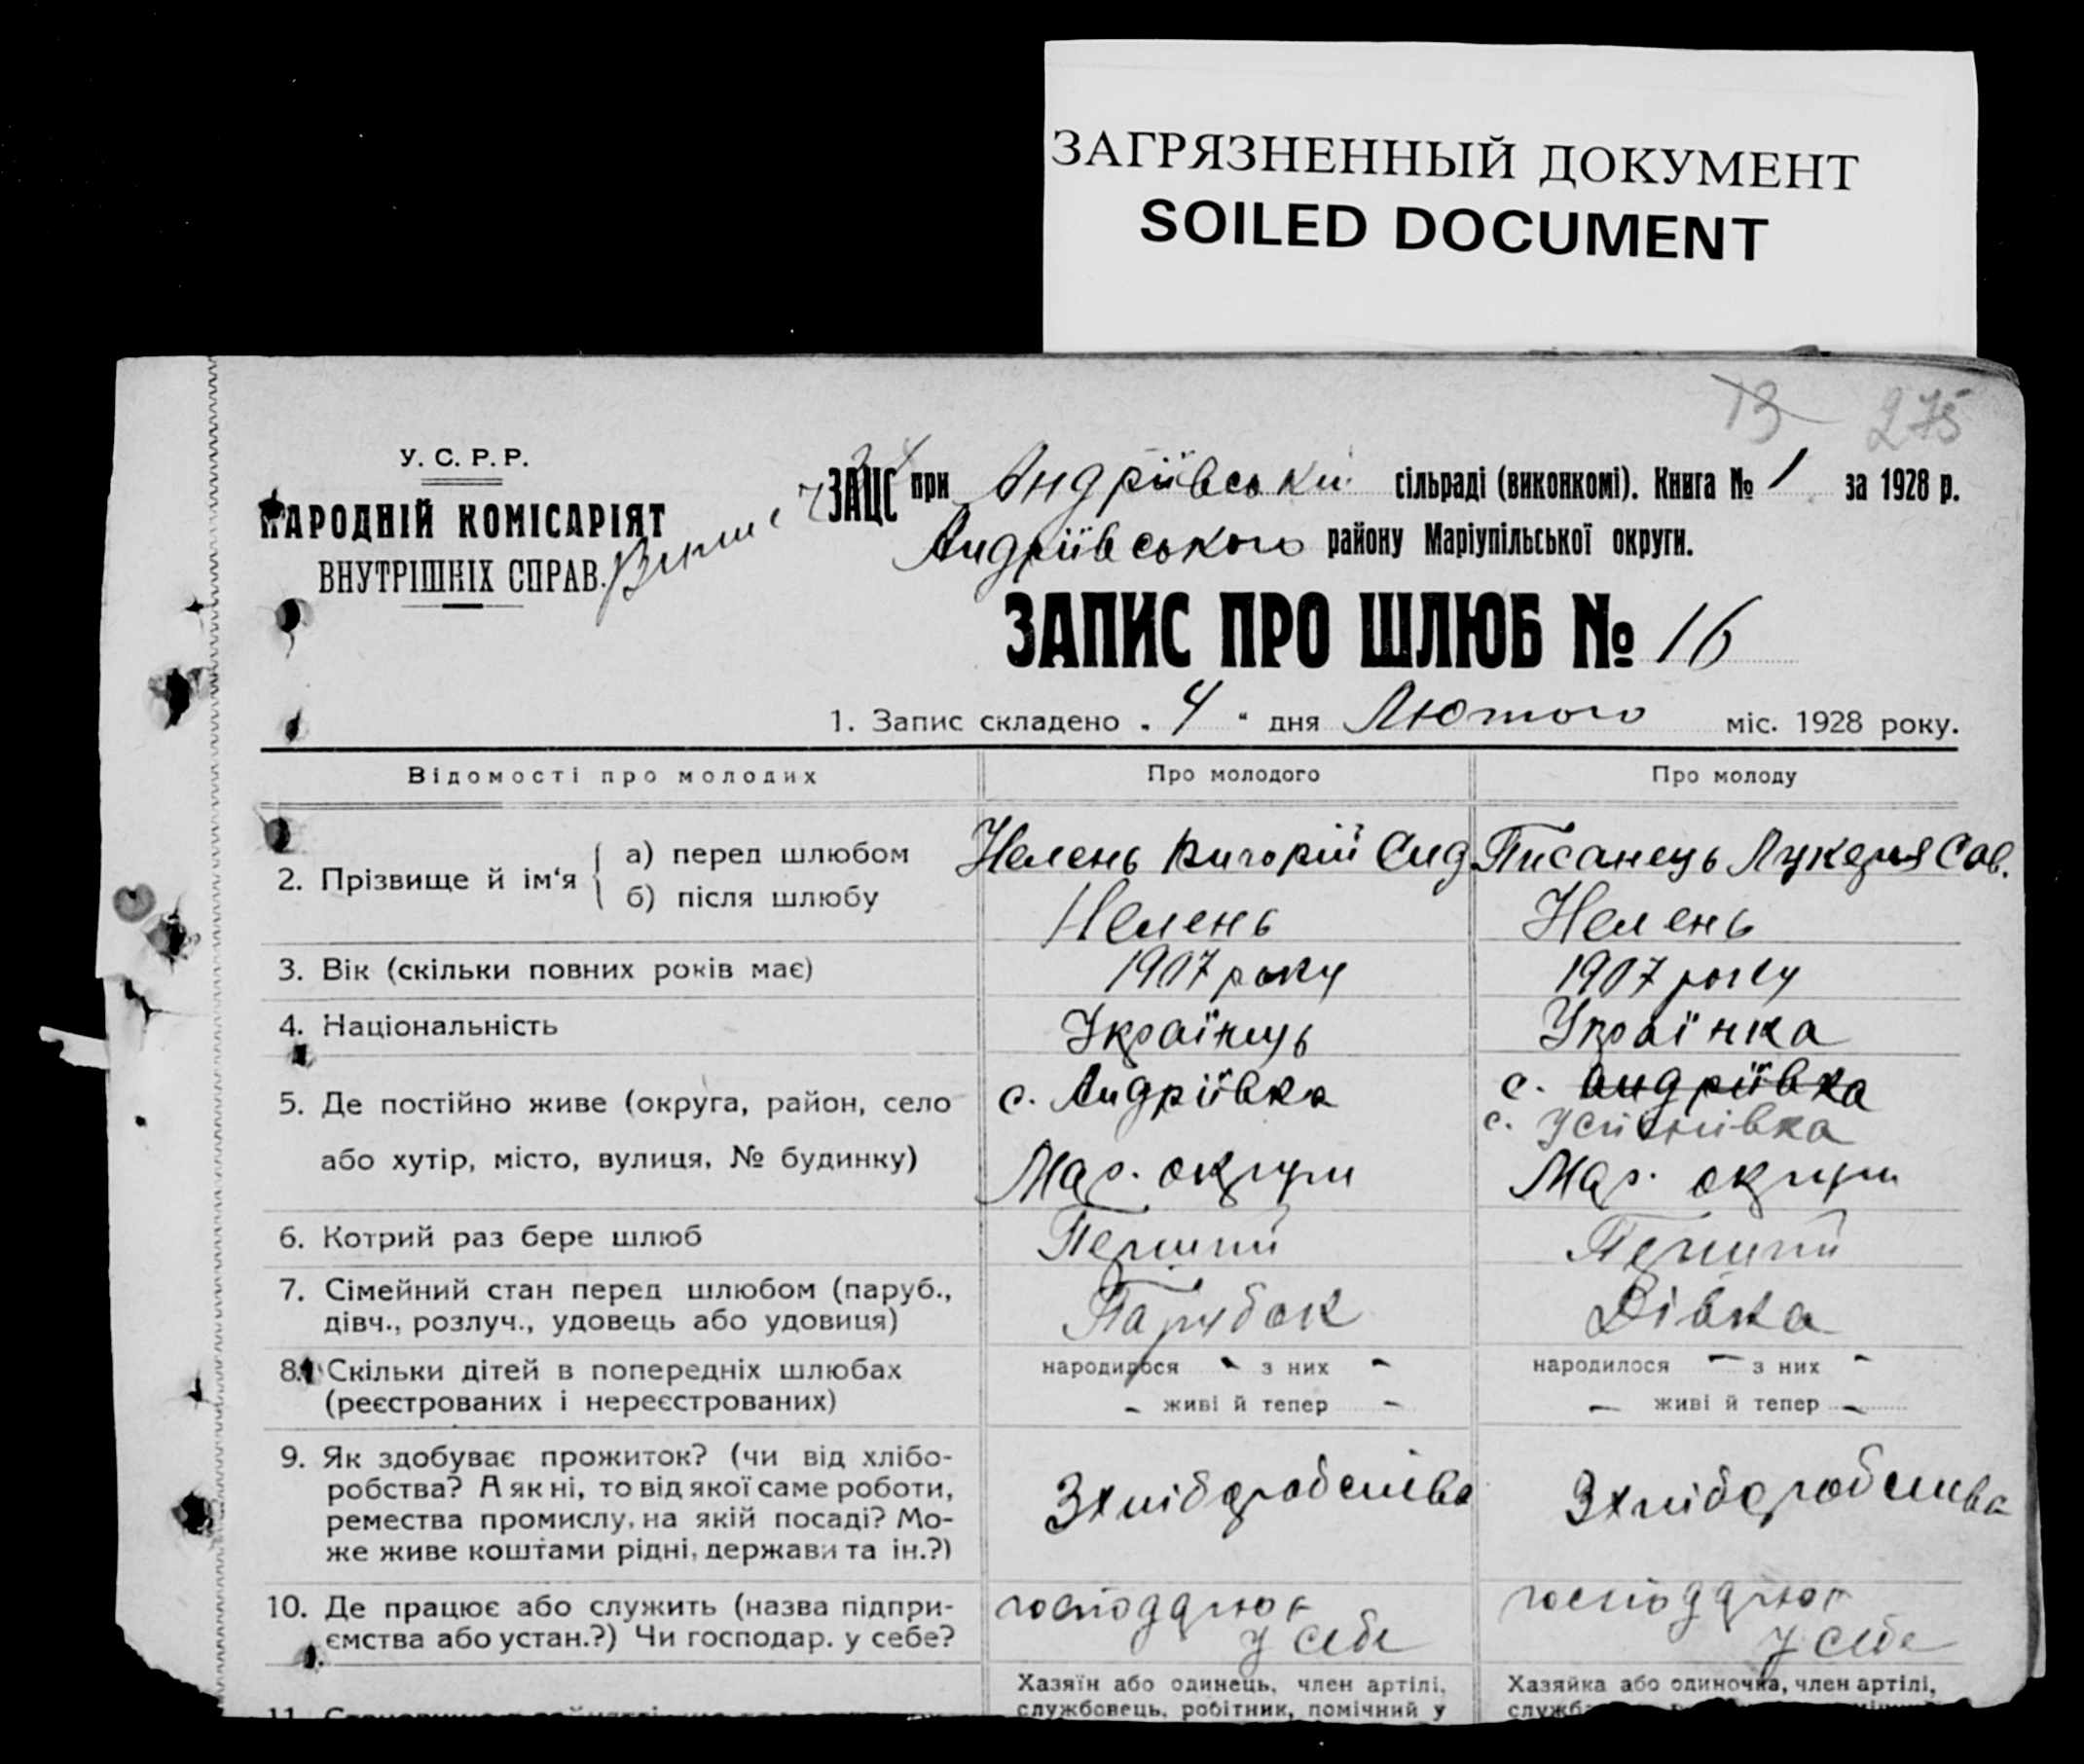 ЗАГРЯЗНЕННЫЙ ДОКУМЕНТ
SOILED DOCUMENT
13 275
У. С. Р. Р.
НАРОДНІЙ КОМІСАРІЯТ
ВНУТРІШНІХ СПРАВ.
ЗАЦС при Андріївській сільраді (виконкомі). Книга № 1 за 1928 р.
Андріївського району Маріупільської округи.
ЗАПИС ПРО ШЛЮБ № 16
1. Запис складено „ 4 " дня Лютого міс. 1928 року.
Відомості про молодих Про молодого Про молоду
2. Прізвище й ім'я { а) перед шлюбом Нелень Григорій Сид Писанець Лукерія Сав.
б) після шлюбу Нелень Нелень
3. Вік (скільки повних років має) 1907 року 1907 року
4. Національність Українець Українка
5. Де постійно живе (округа, район, село с. Андріївка с. Андріївка
с. Успенівка
або хутір, місто, вулиця, № будинку) Мар. округи Мар. округи
6. Котрий раз бере шлюб Перший Перший
7. Сімейний стан перед шлюбом (паруб., Парубок Дівка
дівч., розлуч., удовець або удовиця)
8. Скільки дітей в попередніх шлюбах народилося - з них - народилося - з них -
(реєстрованих і нереєстрованих) - живі й тепер - - живі й тепер -
9. Як здобуває прожиток? (чи від хлібо-
робства? А як ні, то від якої саме роботи, З хліборобства З хліборобства
ремества промислу, на якій посаді? Мо-
же живе коштами рідні, держави та ін.?)
10. Де працює або служить (назва підпри- господарює господарює
ємства або устан.?) Чи господар. у себе? у себе у себе
Хазяїн або одинець, член артілі, Хазяйка або одиночка, член артілі,
11. службовець, робітник, помічний у